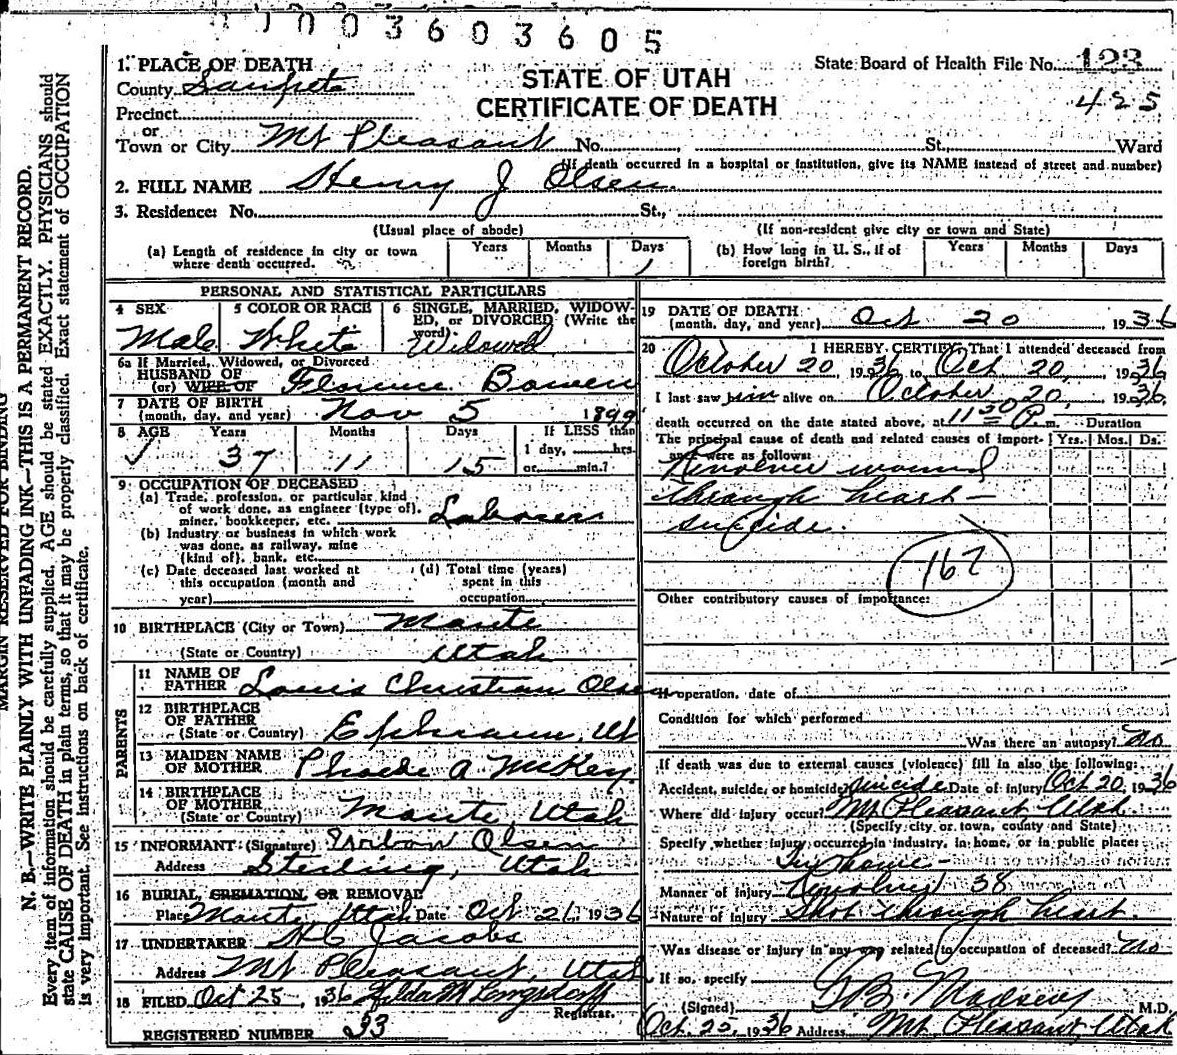 0 0 3 6 0 3 6 0 5
1. PLACE OF DEATH
County Sanpete
STATE OF UTAH
CERTIFICATE OF DEATH
State Board of Health File No. 123
425
Precinct
or
Town or City Mt Pleasant No. St., Ward
(If death occurred in a hospital or institution, give its NAME instead of street and number)
2. FULL NAME Henry J Olsen
3. Residence: No. St.,
(Usual place of abode) (If non-resident give city or town and State)
(a) Length of residence in city or town where death occurred. Years Months Days 1
(b) How long in U. S., if of foreign birth? Years Months Days
PERSONAL AND STATISTICAL PARTICULARS
4 SEX Male
5 COLOR OR RACE White
6 SINGLE, MARRIED, WIDOWED, or DIVORCED (Write the word) Widowed
6a If Married, Widowed, or Divorced
HUSBAND OF
(or) WIFE OF Florence Bowen
7 DATE OF BIRTH
(month, day, and year) Nov 5 1899
8 AGE Years Months Days If LESS than
37 11 15 1 day, hrs.
or min.?
9 OCCUPATION OF DECEASED
(a) Trade, profession, or particular kind
of work done, as engineer (type of),
miner, bookkeeper, etc. Laborer
(b) Industry or business in which work
was done, as railway, mine
(kind of), bank, etc.
(c) Date deceased last worked at
this occupation (month and
year)
(d) Total time (years)
spent in this
occupation
10 BIRTHPLACE (City or Town) Mante
(State or Country) Utah
PARENTS
11 NAME OF
FATHER Louis Christian Olsen
12 BIRTHPLACE
OF FATHER
(State or Country) Ephraim, Ut
13 MAIDEN NAME
OF MOTHER Phoebe A McKey
14 BIRTHPLACE
OF MOTHER
(State or Country) Mante, Utah
15 INFORMANT (Signature) Olsen
Address Sterling, Utah
16 BURIAL, CREMATION, OR REMOVAL
Place Mante, Utah Date Oct 26, 1936
17 UNDERTAKER Jacobs
Address Mt Pleasant, Utah
18 FILED Oct 25, 1936 Hilda M Longsdorff
Registrar.
REGISTERED NUMBER 33
19 DATE OF DEATH
(month, day, and year) Oct 20 1936
20 I HEREBY CERTIFY, That I attended deceased from
October 20, 1936 to Oct 20, 1936
I last saw him alive on October 20, 1936,
death occurred on the date stated above, at 11 30 P. m.
Duration
The principal cause of death and related causes of importance were as follows: Yrs. Mos. Ds.
Revolver wound
through heart —
suicide.
167
Other contributory causes of importance:
If operation, date of
Condition for which performed
Was there an autopsy? no
If death was due to external causes (violence) fill in also the following:
Accident, suicide, or homicide? suicide Date of injury Oct 20, 1936
Where did injury occur? Mt Pleasant, Utah
(Specify city or town, county and State)
Specify whether injury occurred in industry, in home, or in public place:
In home —
Manner of Injury Revolver 38
Nature of Injury Shot through heart.
Was disease or injury in any way related to occupation of deceased? no
If so, specify
(Signed) Madsen M.D.
Oct. 25, 1936 Address Mt Pleasant, Utah
MARGIN RESERVED FOR BINDING
N. B.—WRITE PLAINLY WITH UNFADING INK—THIS IS A PERMANENT RECORD.
Every item of information should be carefully supplied. AGE should be stated EXACTLY. PHYSICIANS should
state CAUSE OF DEATH in plain terms, so that it may be properly classified. Exact statement of OCCUPATION
is very important. See instructions on back of certificate.